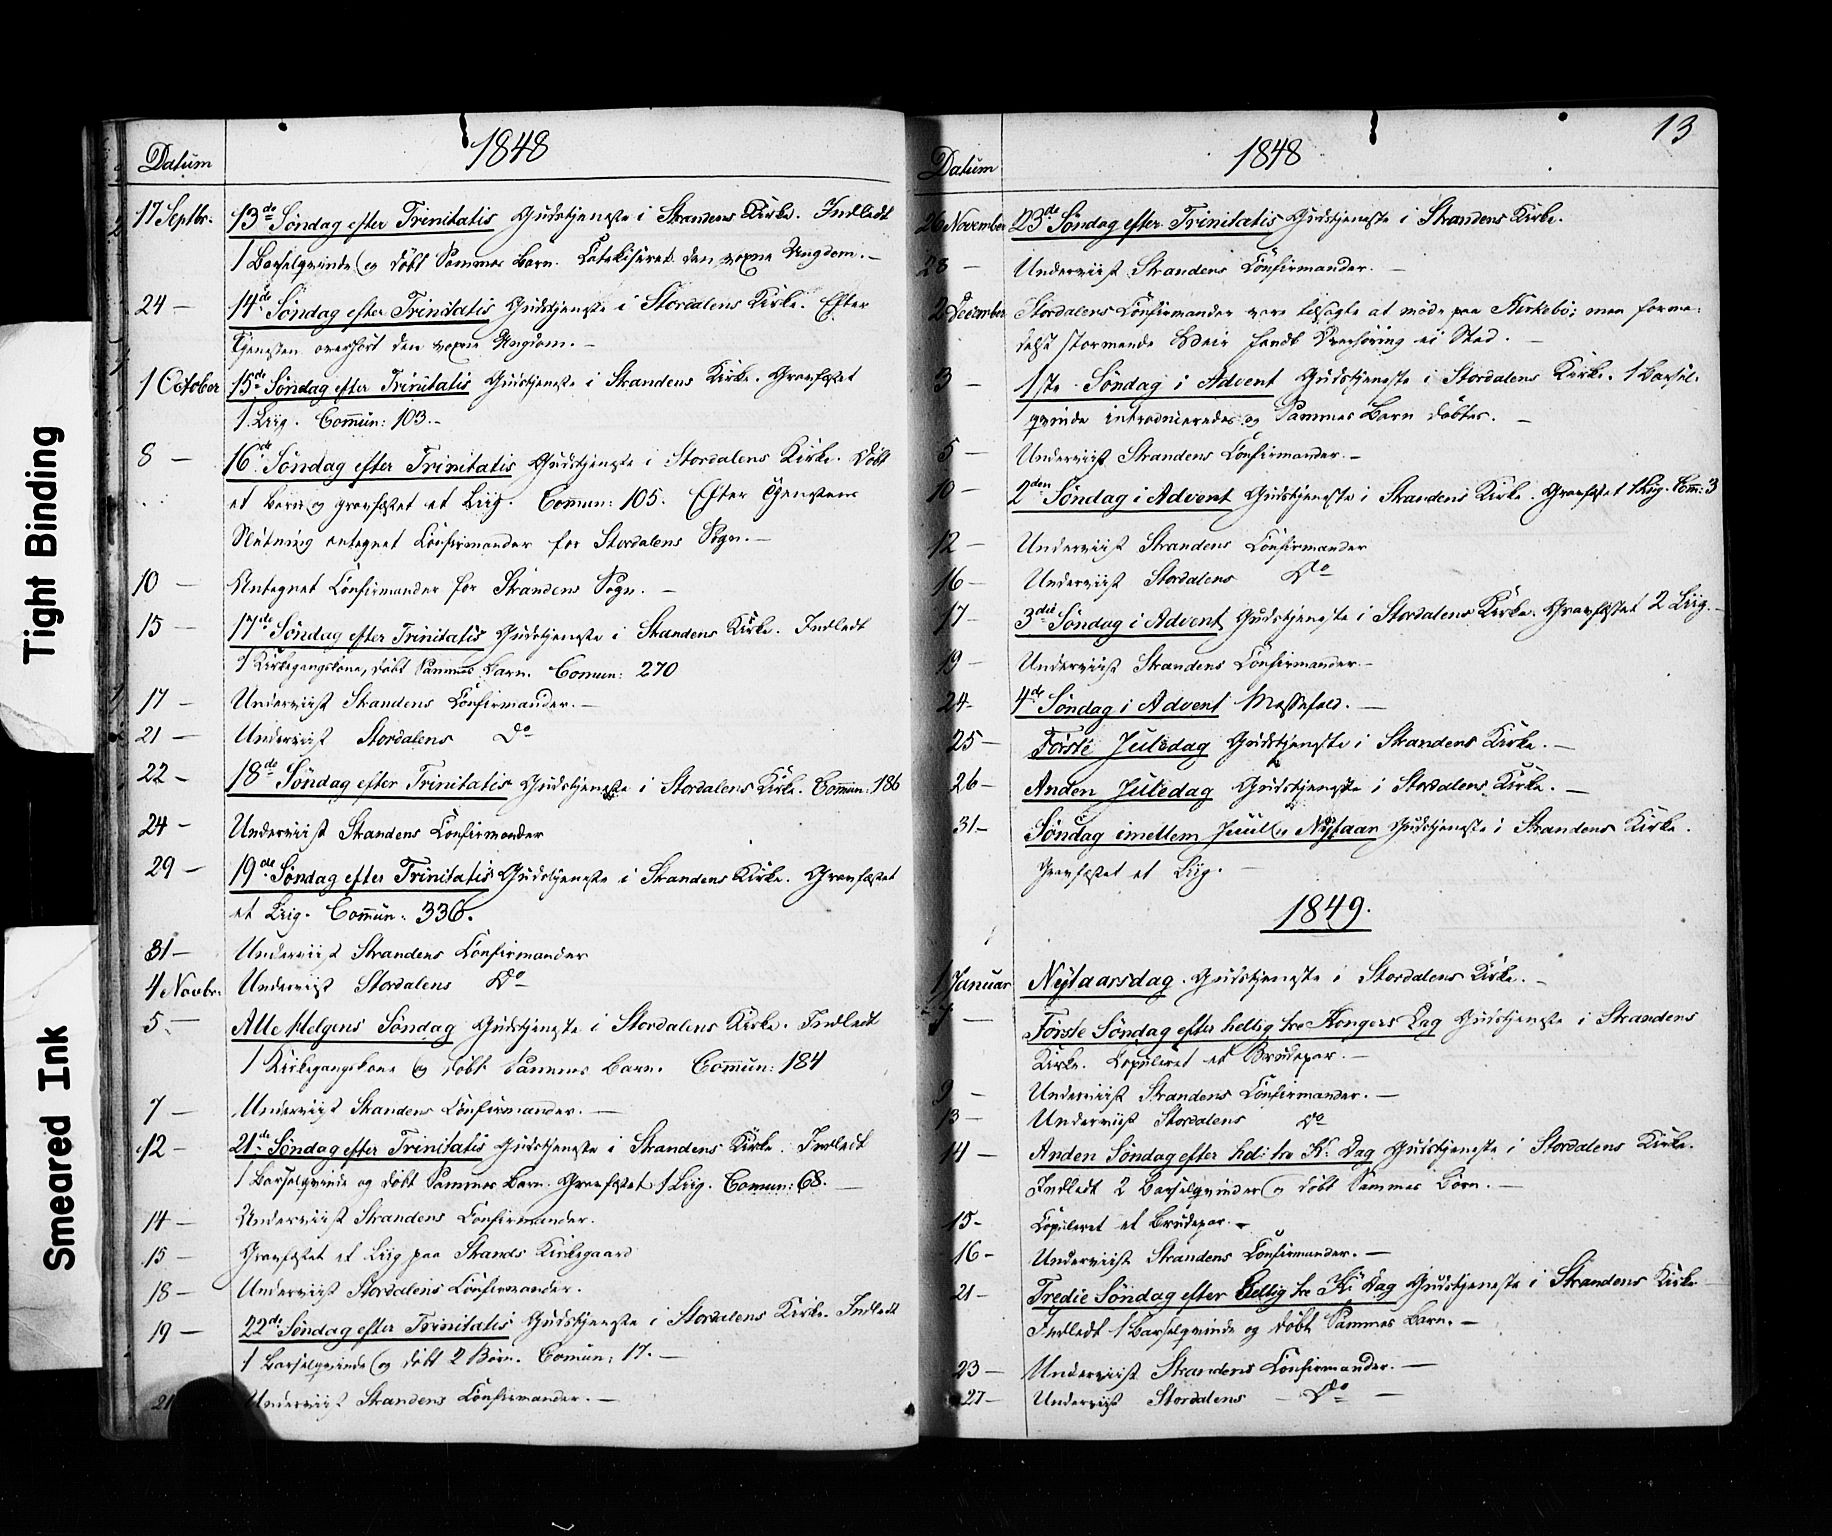 Tight Binding
Smeared Ink
Datum 1848
17 Septbr. 13de Søndag efter Trinitatis Gudstjeneste i Strandens Kirke. Indledt
1 Barselqvinde og døbt Sammes Barn. Catekiseret den voxne Ungdom. —
24 — 14de Søndag efter Trinitatis Gudstjeneste i Stordalens Kirke. Efter
Tjenesten overhørt den voxne Ungdom. —
1 October 15de Søndag efter Trinitatis Gudstjeneste i Strandens Kirke. Gravfæstet
1 Liig. Commun: 103. —
8 — 16de Søndag efter Trinitatis Gudstjeneste i Stordalens Kirke. Døbt
et Barn og gravfæstet et Liig. Commun: 105. Efter Tjenestens
Slutning antegnet Confirmander for Stordalens Sogn. —
10 — Antegnet Confirmander for Strandens Sogn. —
15 — 17de Søndag efter Trinitatis Gudstjeneste i Strandens Kirke. Indledt
1 Kirkegangskone, døbt Sammes Barn. Comun: 270
17 — Underviist Strandens Confirmander. —
21 — Underviist Stordalens Do
22 — 18de Søndag efter Trinitatis Gudstjeneste i Stordalens Kirke. Commun: 186
24 — Underviist Strandens Confirmander
29 — 19de Søndag efter Trinitatis Gudstjeneste i Strandens Kirke. Gravfæstet
et Liig. Commun: 336.
31 — Underviist Strandens Confirmander
4 Novbr. Underviist Stordalens Do
5 — Alle Helgens Søndag Gudstjeneste i Stordalens Kirke. Indledt
1 Kirkegangskone og døbt Sammes Barn. Commun: 184
7 — Underviist Strandens Confirmander. —
12 — 21de Søndag efter Trinitatis Gudstjeneste i Strandens Kirke. Indledt
1 Barselqvinde og døbt Sammes Barn. Gravfæstet 1 Liig. Comun: 68. —
14 — Underviist Strandens Confirmander.
15 — Gravfæstet et Liig paa Strands Kirkegaard
18 — Underviist Stordalens Confirmander.
19 — 22de Søndag efter Trinitatis Gudstjeneste i Stordalens Kirke. Indledt
1 Barselqvinde og døbt 2 Børn. Comun: 17. —
21 Underviist Strandens Confirmander. —
13
Datum 1848
26 November 23de Søndag efter Trinitatis Gudstjeneste i Strandens Kirke.
28 — Underviist Strandens Confirmander. —
2 December Stordalens Confirmander vare tilsagte at møde paa Kirkebø; men forme-
delst stormende Veir fandt Overhøring ei Sted. —
3 — 1ste Søndag i Advent Gudstjeneste i Stordalens Kirke. 1 Barsel-
qvinde introduceredes og Sammes Barn døbtes. —
5 — Underviist Strandens Confirmander. —
10 — 2den Søndag i Advent Gudstjeneste i Strandens Kirke. Gravfæstet 1 Liig. Com: 3
12 — Underviist Strandens Confirmander
16 — Underviist Stordalens Do
17 — 3die Søndag i Advent Gudstjeneste i Stordalens Kirke. Gravfæstet 2 Liig. —
19 — Underviist Strandens Confirmander. —
24 — 4de Søndag i Advent Messefald. —
25 — Første Juledag Gudstjeneste i Strandens Kirke. —
26 — Anden Juledag Gudstjeneste i Stordalens Kirke. —
31 — Søndag imellem Juul og Nytaar Gudstjeneste i Strandens Kirke.
Gravfæstet et Liig. —
1849.
1 Januar Nytaarsdag. Gudstjeneste i Stordalens Kirke. —
7 — Første Søndag efter hellig tre Kongers Dag Gudstjeneste i Strandens
Kirke. Copuleret et Brudepar. —
9 — Underviist Strandens Confirmander. —
13 — Underviist Stordalens Do
14 — Anden Søndag efter hel: tre K: Dag Gudstjeneste i Stordalens Kirke.
Indledt 2 Barselqvinder og døbt Sammes Børn. —
15 — Copuleret et Brudepar. —
16 — Underviist Strandens Confirmander. —
21 — Tredie Søndag efter hellig tre K: Dag Gudstjeneste i Strandens Kirke
Indledt 1 Barselqvinde og døbt Sammes Barn. —
23 — Underviist Strandens Confirmander. —
27 — Underviist Stordalens — Do —